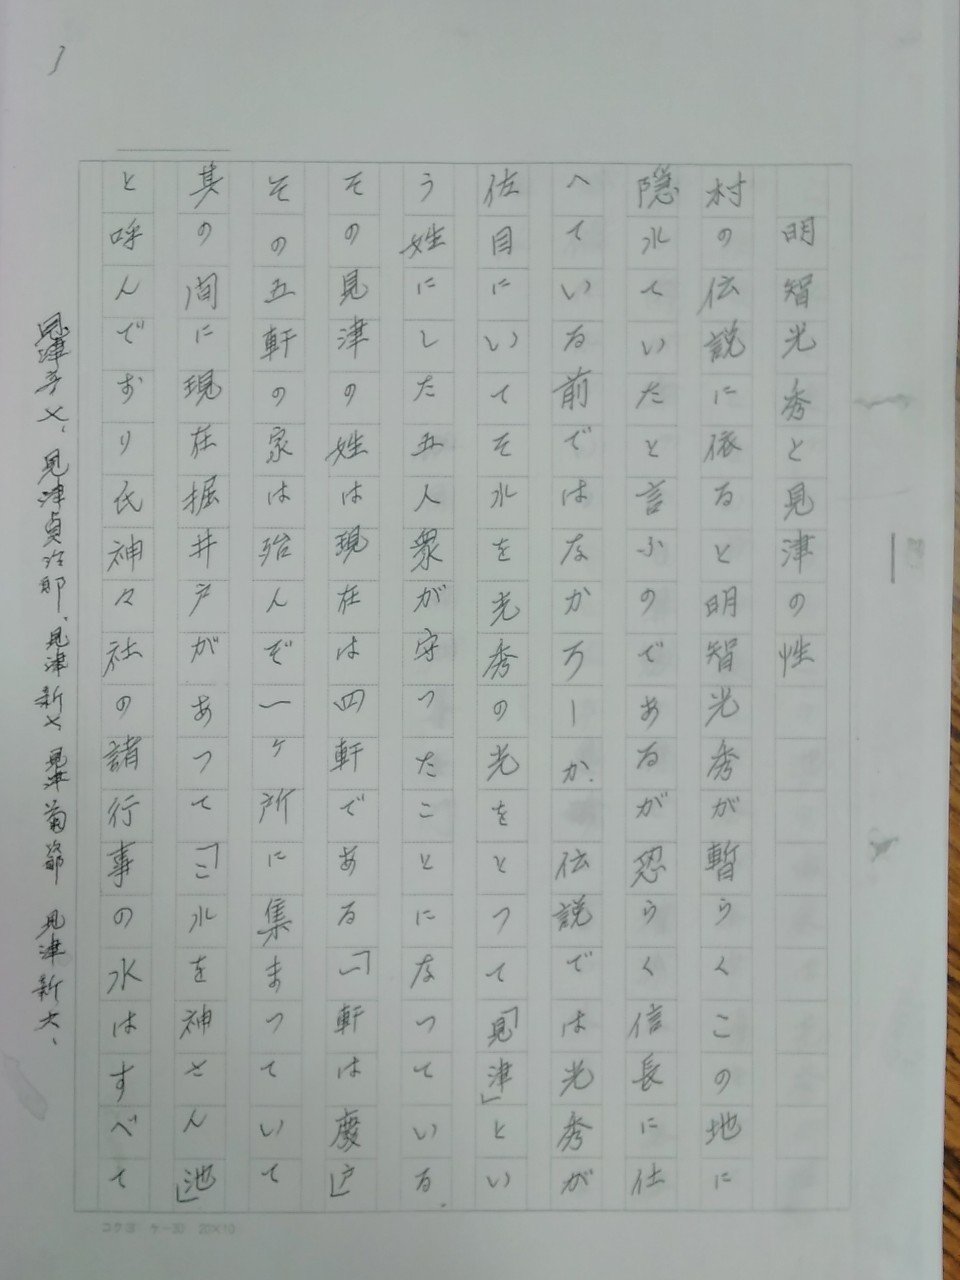 1
明智光秀と見津の性
村の伝説に依ると明智光秀が暫らくこの地に
隠れていたと言ふのであるが恐らく信長に仕
へている前ではなかろーか、伝説では光秀が
佐目にいてそれを光秀の光をとつて「見津」とい
う姓にした五人衆が守つたことになつている。
その見津の姓は現在は四軒である「一軒は廃戸」
その五軒の家は殆んぞ一ヶ所に集まつていて
其の間に現在掘井戸があつて「これを神さん池」
と呼んでおり氏神々社の諸行事の水はすべて
見津辛〆、見津貞治郎、見津新〆 見津菊 見津新六、
コクヨ ケ-30 20×10